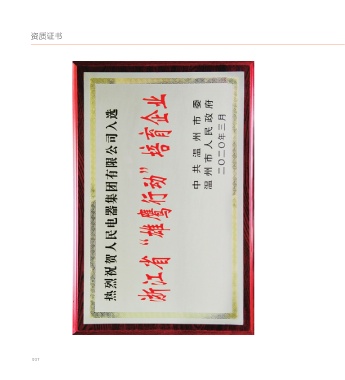 资质证书
热烈祝贺人民电器集团有限公司入选
浙江省“雄鹰行动”培育企业
中共温州市委
温州市人民政府
二〇二〇年三月